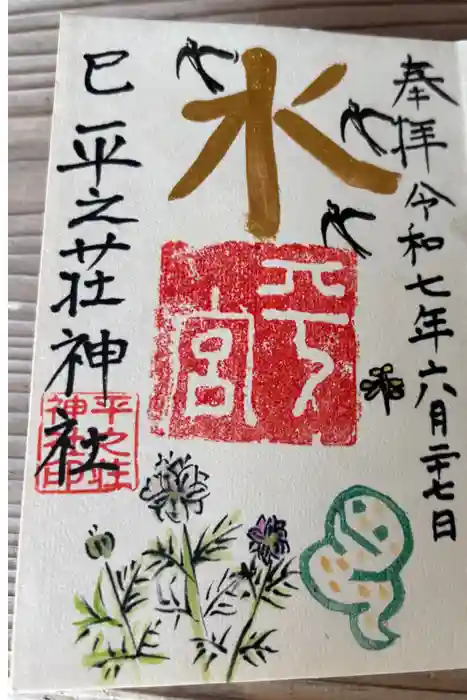 奉拝 令和七年六月二十七日
水
平之宮
巳 平之荘神社
平之荘
神社印